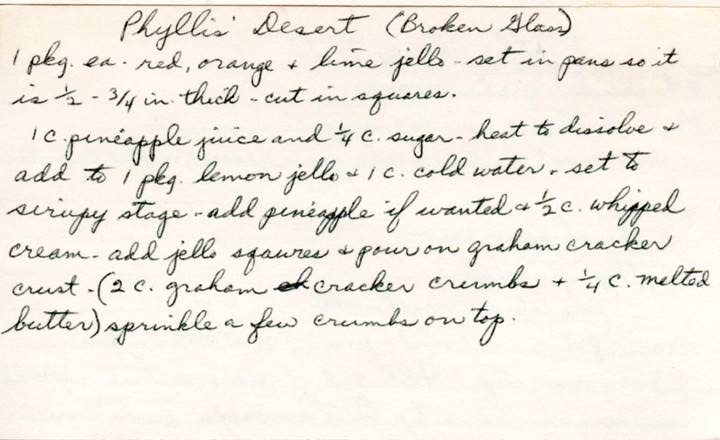 Phyllis' Desert (Broken Glass)
1 pkg. ea. red, orange + lime jello - set in pans so it
is 1/2 - 3/4 in. thick - cut in squares.
1 c. pineapple juice and 1/4 c. sugar - heat to dissolve +
add to 1 pkg. lemon jello + 1 c. cold water. set to
sirupy stage - add pineapple if wanted + 1/2 c. whipped
cream - add jello sqaures + pour on graham cracker
crust - (2 c. graham cracker crumbs + 1/4 c. melted
butter) sprinkle a few crumbs on top.